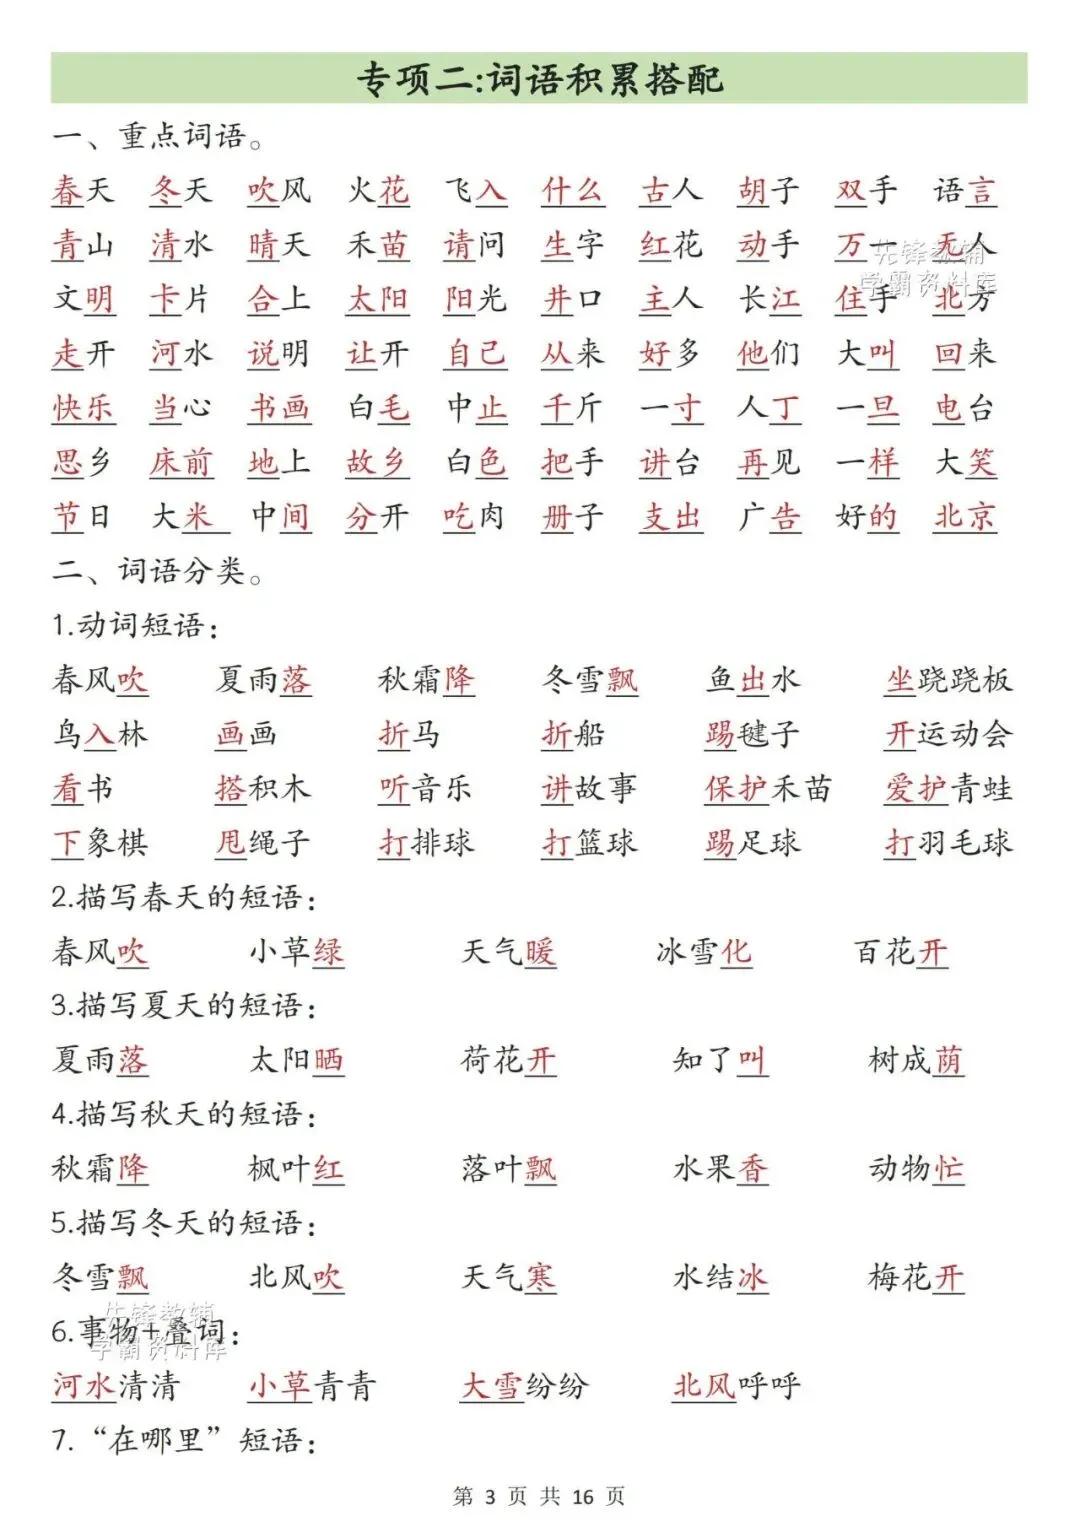 专项二:词语积累搭配
一、重点词语。
春天 冬天 吹风 火花 飞入 什么 古人 胡子 双手 语言
青山 清水 晴天 禾苗 请问 生字 红花 动手 万一 无人
先锋教辅
学霸资料库
文明 卡片 合上 太阳 阳光 井口 主人 长江 住手 北方
走开 河水 说明 让开 自己 从来 好多 他们 大叫 回来
快乐 当心 书画 白毛 中止 千斤 一寸 人丁 一旦 电台
思乡 床前 地上 故乡 白色 把手 讲台 再见 一样 大笑
节日 大米 中间 分开 吃肉 册子 支出 广告 好的 北京
二、词语分类。
1.动词短语：
春风吹 夏雨落 秋霜降 冬雪飘 鱼出水 坐跷跷板
鸟入林 画画 折马 折船 踢毽子 开运动会
看书 搭积木 听音乐 讲故事 保护禾苗 爱护青蛙
下象棋 甩绳子 打排球 打篮球 踢足球 打羽毛球
2.描写春天的短语：
春风吹 小草绿 天气暖 冰雪化 百花开
3.描写夏天的短语：
夏雨落 太阳晒 荷花开 知了叫 树成荫
4.描写秋天的短语：
秋霜降 枫叶红 落叶飘 水果香 动物忙
5.描写冬天的短语：
冬雪飘 北风吹 天气寒 水结冰 梅花开
先锋教辅
6.事物+叠词：
学霸资料库
河水清清 小草青青 大雪纷纷 北风呼呼
7.“在哪里”短语：
第 3 页 共 16 页